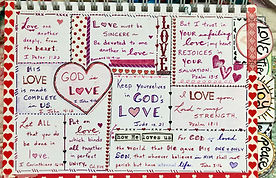 LOVE one
another deeply,
from the
heart.
I Peter 1:22
LOVE must be
SINCERE
Be devoted to one
another in love.
LOVE
But I trust in
YOUR unfailing
love; my heart
REJOICES
in YOUR
SALVATION.
Psalm 13:5
LOVE
is made
COMPLETE
in US.
GOD is
LOVE
Keep yourselves
in GOD'S
LOVE
Jude v. 21
LOVE you,
Lord
STRENGTH.
Psalm 18:1
Let All
that you
do be
done in
love.
Put on
love
which binds
all together
in perfect
unity.
how He loves us
for GOD so loved
the world that HE gave His ONE & ONLY
SON, that whoever believes in HIM shall not
perish but have eternal life.